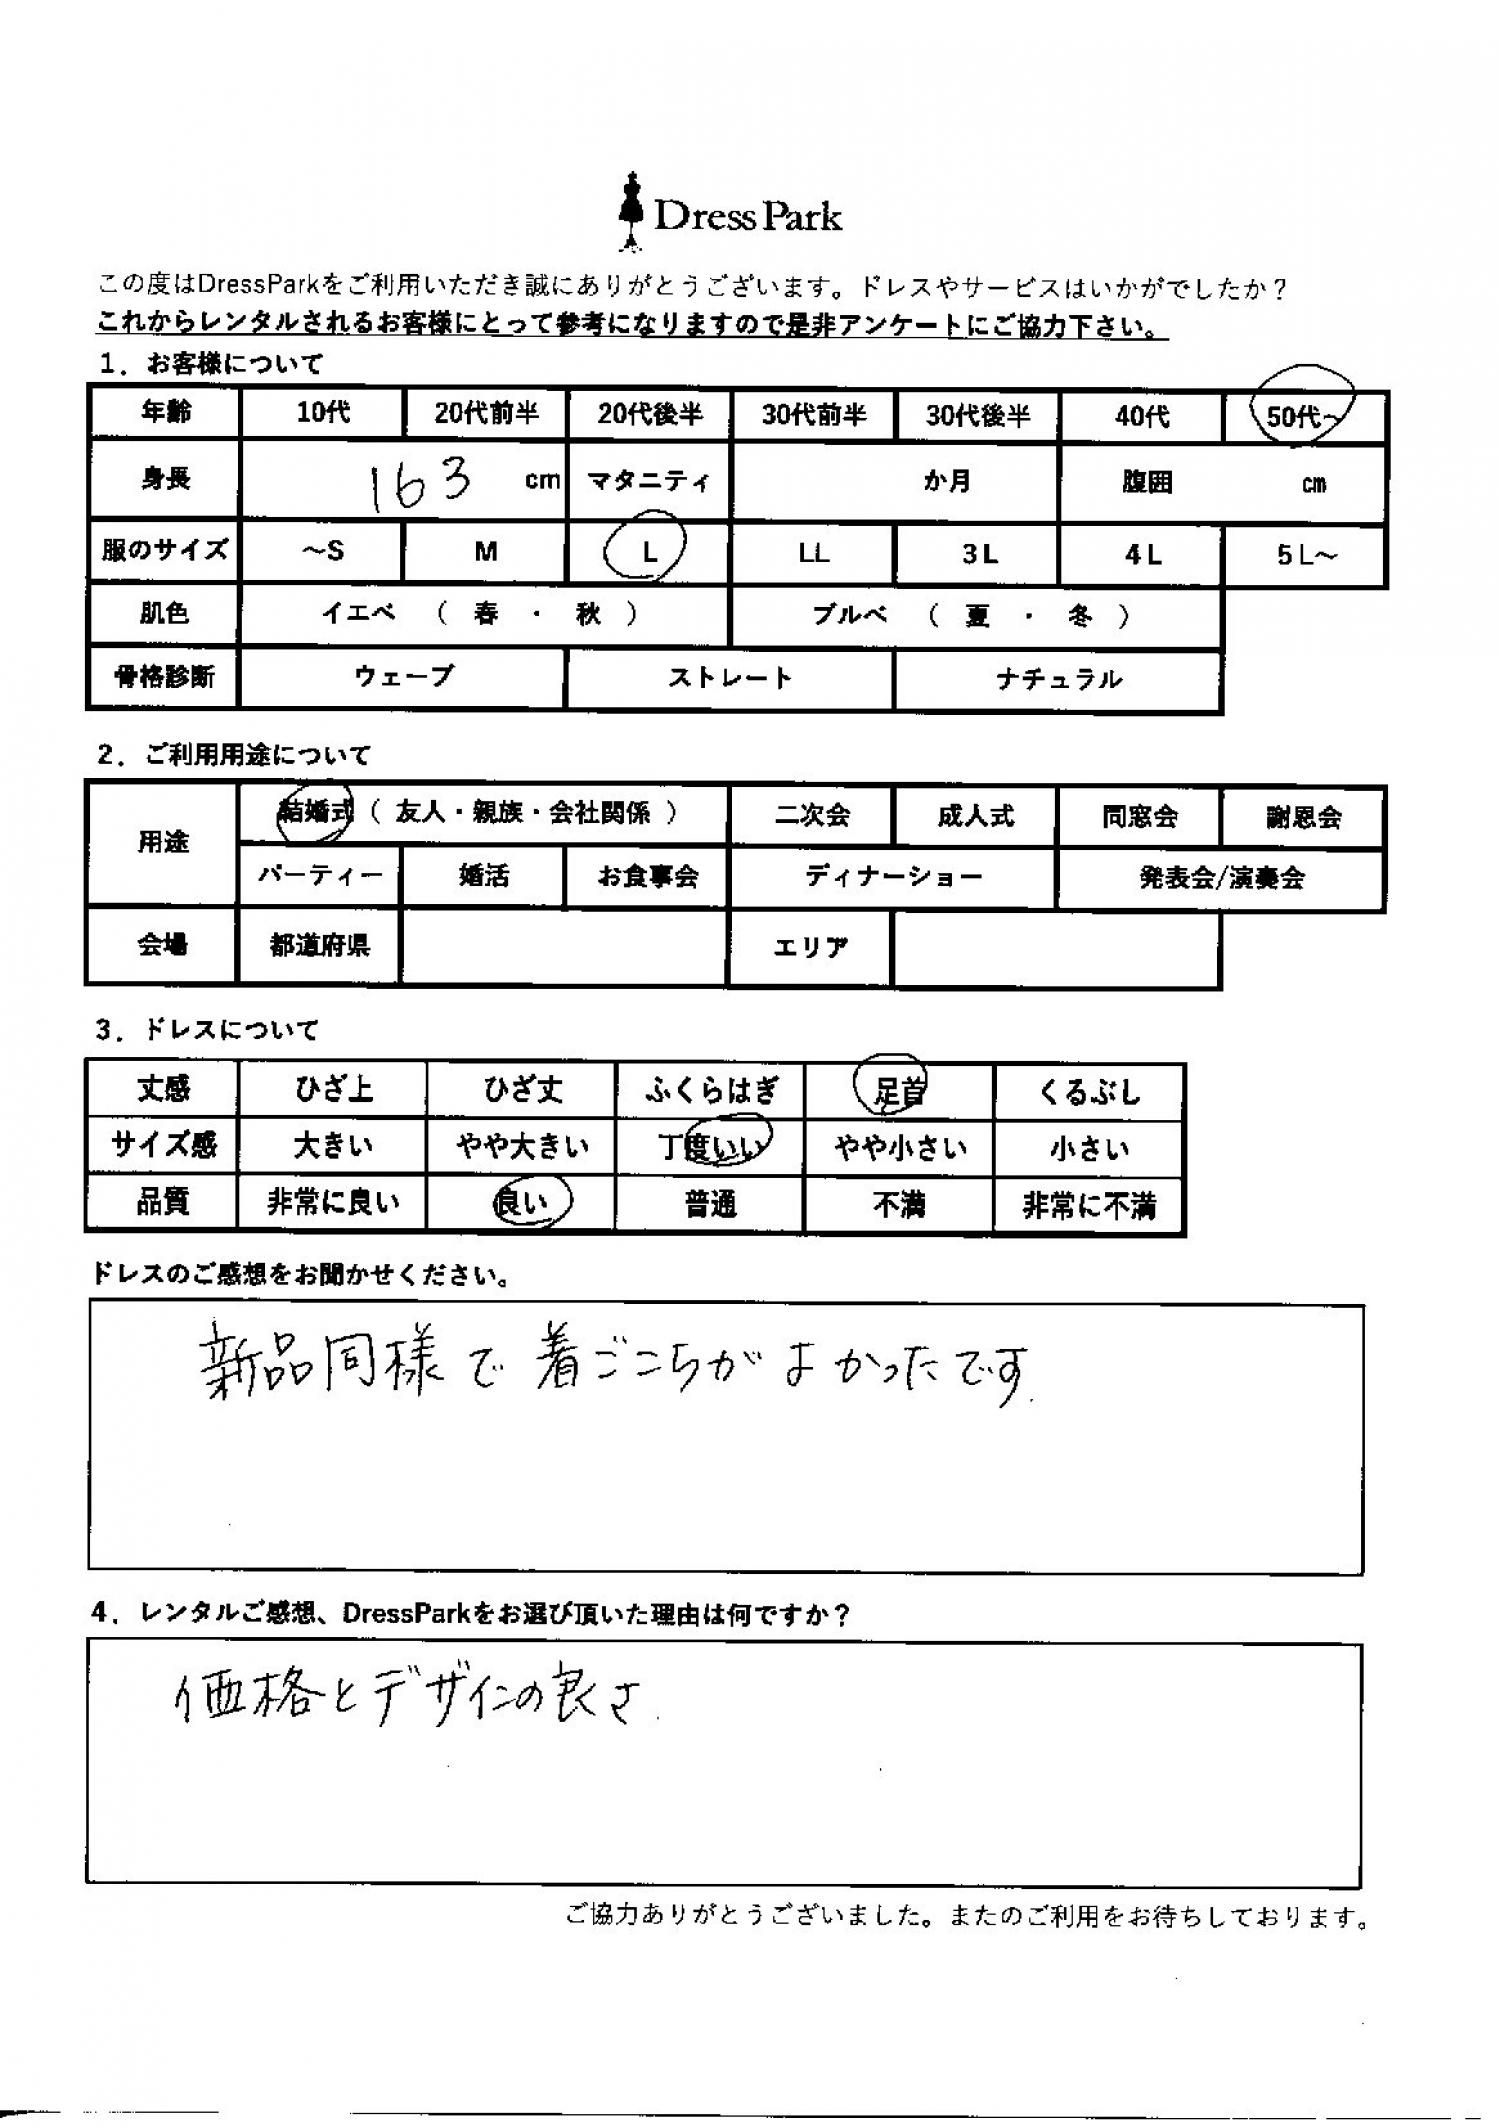 Dress Park
この度はDressParkをご利用いただき誠にありがとうございます。ドレスやサービスはいかがでしたか？
これからレンタルされるお客様にとって参考になりますので是非アンケートにご協力下さい。
1．お客様について
年齢 10代 20代前半 20代後半 30代前半 30代後半 40代 50代～
身長 163 cm マタニティ か月 腹囲 cm
服のサイズ ～S M L LL 3L 4L 5L～
肌色 イエベ （ 春 ・ 秋 ） ブルベ （ 夏 ・ 冬 ）
骨格診断 ウェーブ ストレート ナチュラル
2．ご利用用途について
用途 結婚式（ 友人・親族・会社関係 ） 二次会 成人式 同窓会 謝恩会
パーティー 婚活 お食事会 ディナーショー 発表会/演奏会
会場 都道府県 エリア
3．ドレスについて
丈感 ひざ上 ひざ丈 ふくらはぎ 足首 くるぶし
サイズ感 大きい やや大きい 丁度いい やや小さい 小さい
品質 非常に良い 良い 普通 不満 非常に不満
ドレスのご感想をお聞かせください。
新品同様で着ごこちがよかったです.
4．レンタルご感想、DressParkをお選び頂いた理由は何ですか？
価格とデザインの良さ.
ご協力ありがとうございました。またのご利用をお待ちしております。